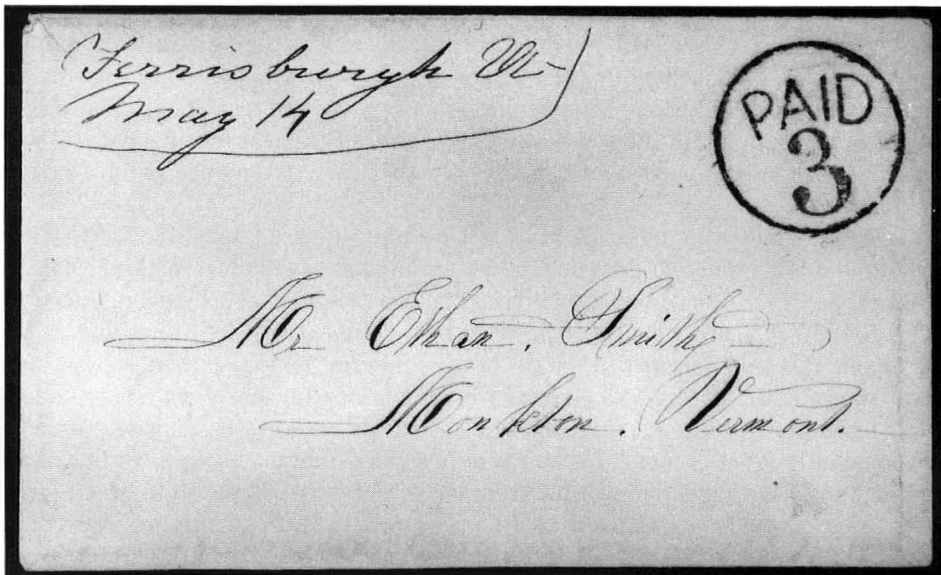 Ferrisburgh Vt
May 14
PAID
3
Mr Ethan. Smith
Monkton. Vermont.